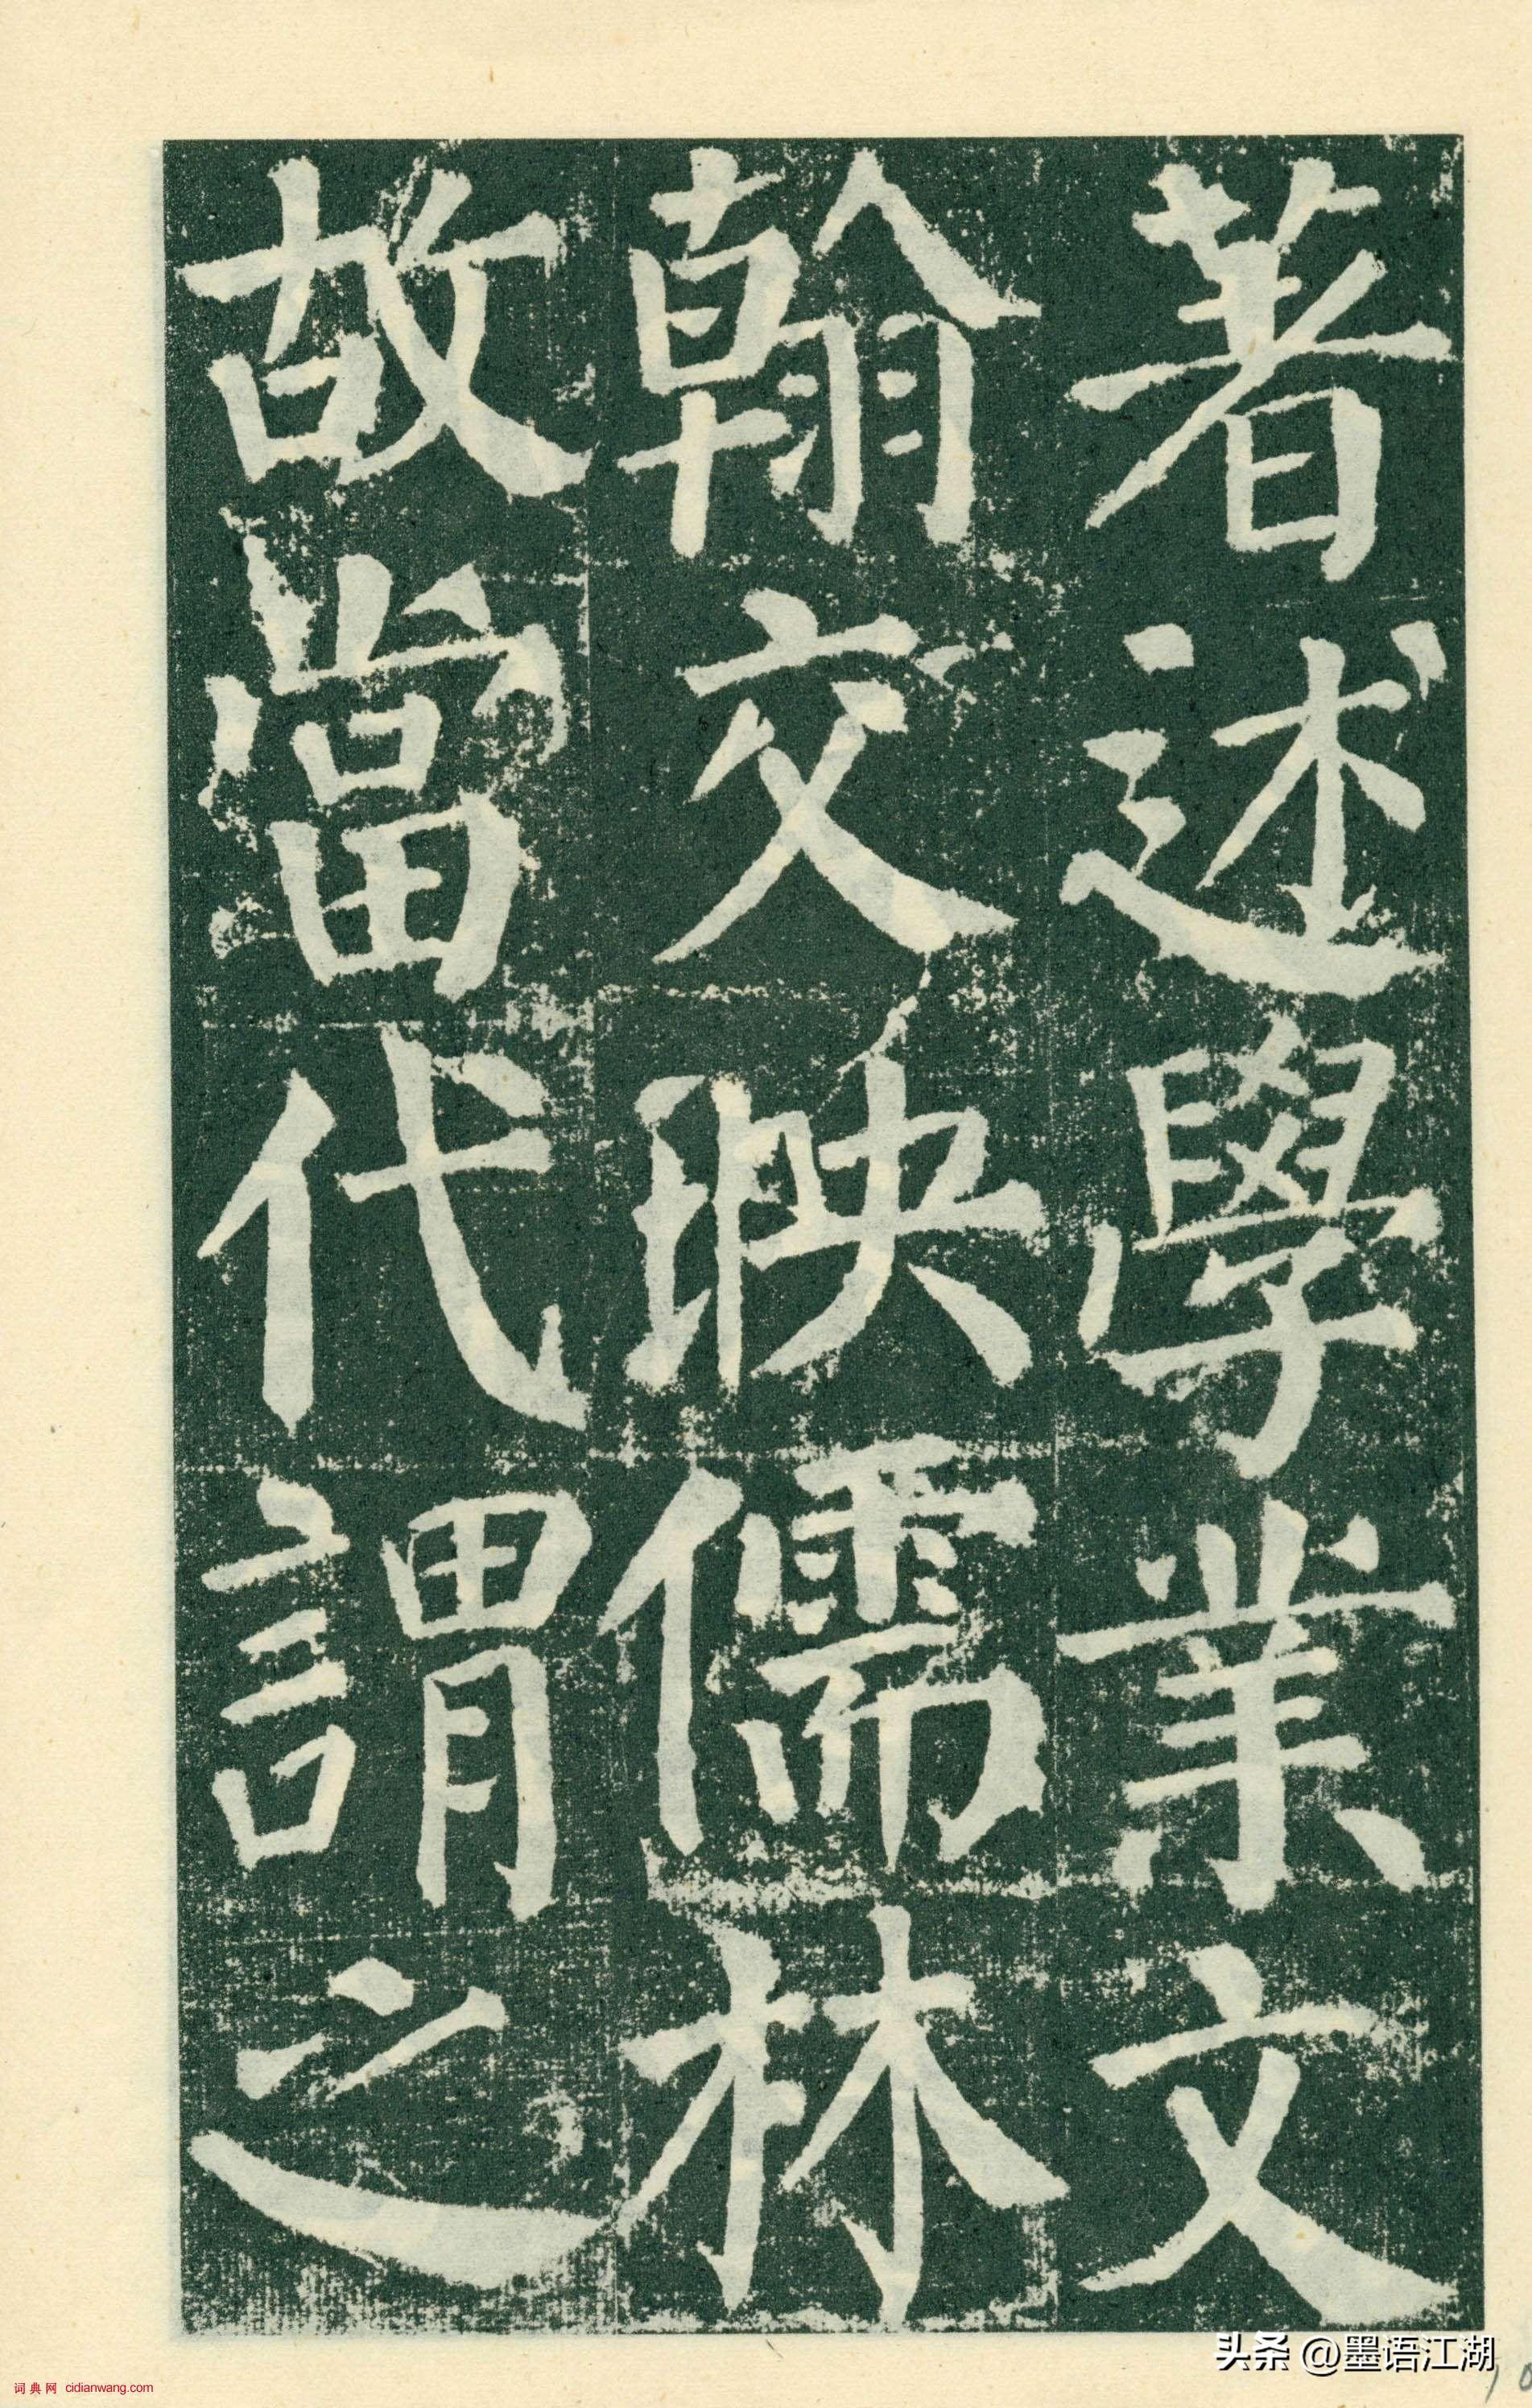 著述學業文
翰交映儒林
故當代謂之
头条 @墨语江湖
词典网 cidianwang.com